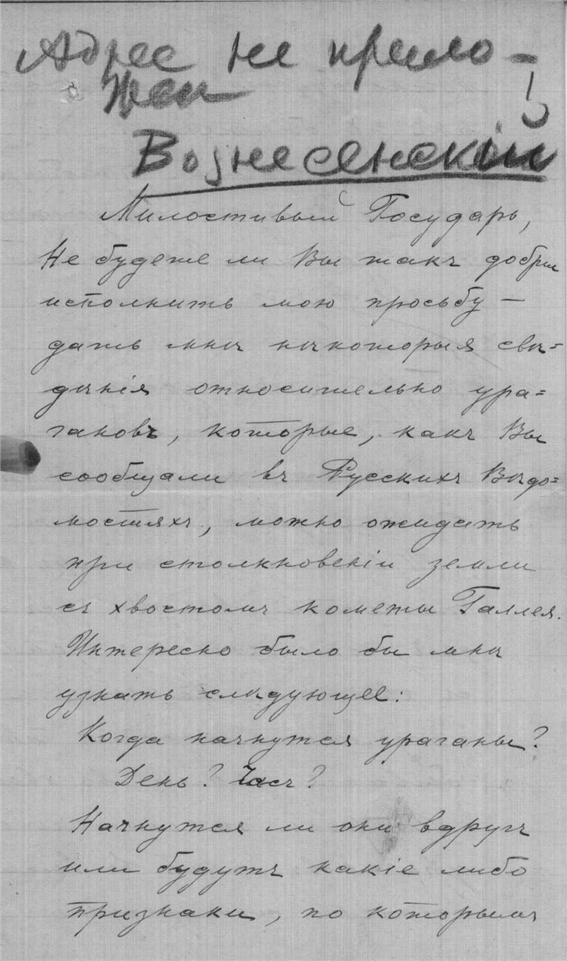 Адрес не прило-
жен
Вознесенскiй
Милостивый Государь,
Не будете ли Вы такъ добры
исполнить мою просьбу —
дать мнѣ нѣкоторыя свѣ=
дѣнiя относительно ура=
гановъ, которые, какъ Вы
сообщали въ Русскихъ Вѣдо=
мостяхъ, можно ожидать
при столкновенiи земли
съ хвостомъ кометы Галлея.
Интересно было бы мнѣ
узнать слѣдующее:
Когда начнутся ураганы?
День? Часъ?
Начнутся ли они вдругъ
или будутъ какiе либо
признаки, по которымъ